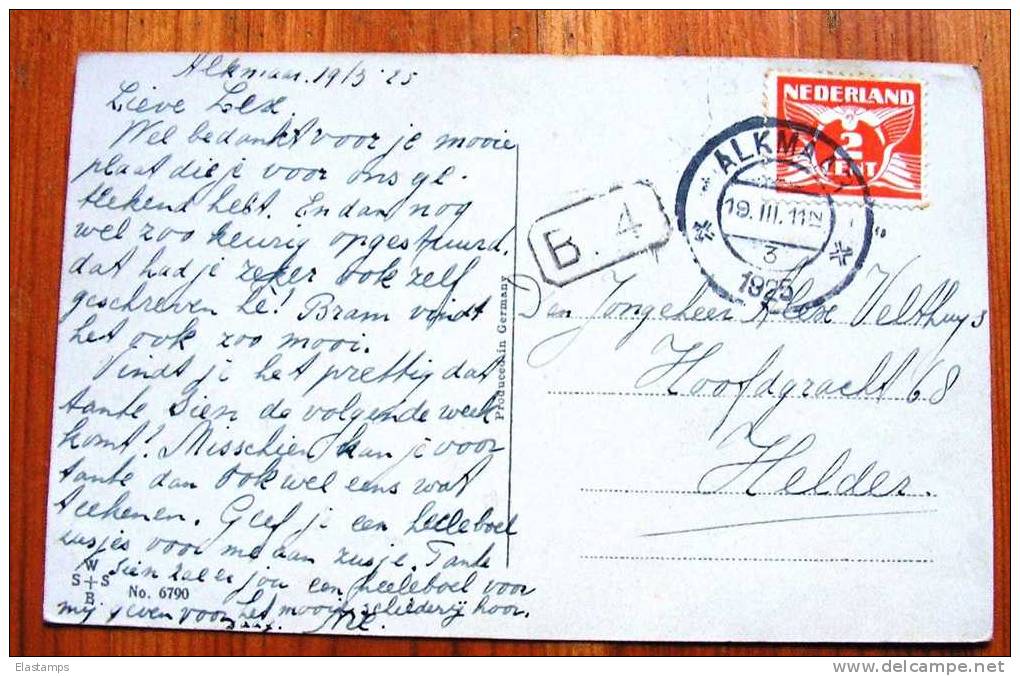 Alkmaar. 19/3 '25
Lieve Lex.
Wel bedankt voor je mooie
plaat die je voor ons ge-
teekend hebt. En dan nog
wel zoo keurig opgestuurd,
dat had je zeker ook zelf
geschreven hè! Bram vindt
het ook zoo mooi.
Vindt je het prettig dat
tante Sien de volgende week
komt! Misschien kan je voor
tante dan ook wel eens wat
teekenen. Geef je een heeleboel
zusjes voor me aan zusje. Tante
Sien zal er jou een heeleboel voor
mij geven voor het mooie hoor.
W
S S
B
No. 6790
Produced in Germany
NEDERLAND
2
CENT
ALKMAAR
19.III.11
3
1925
B. 4
Den Jongeheer Velthuys
Hoofdgracht 68
Helder.
Elastamps
www.delcampe.net